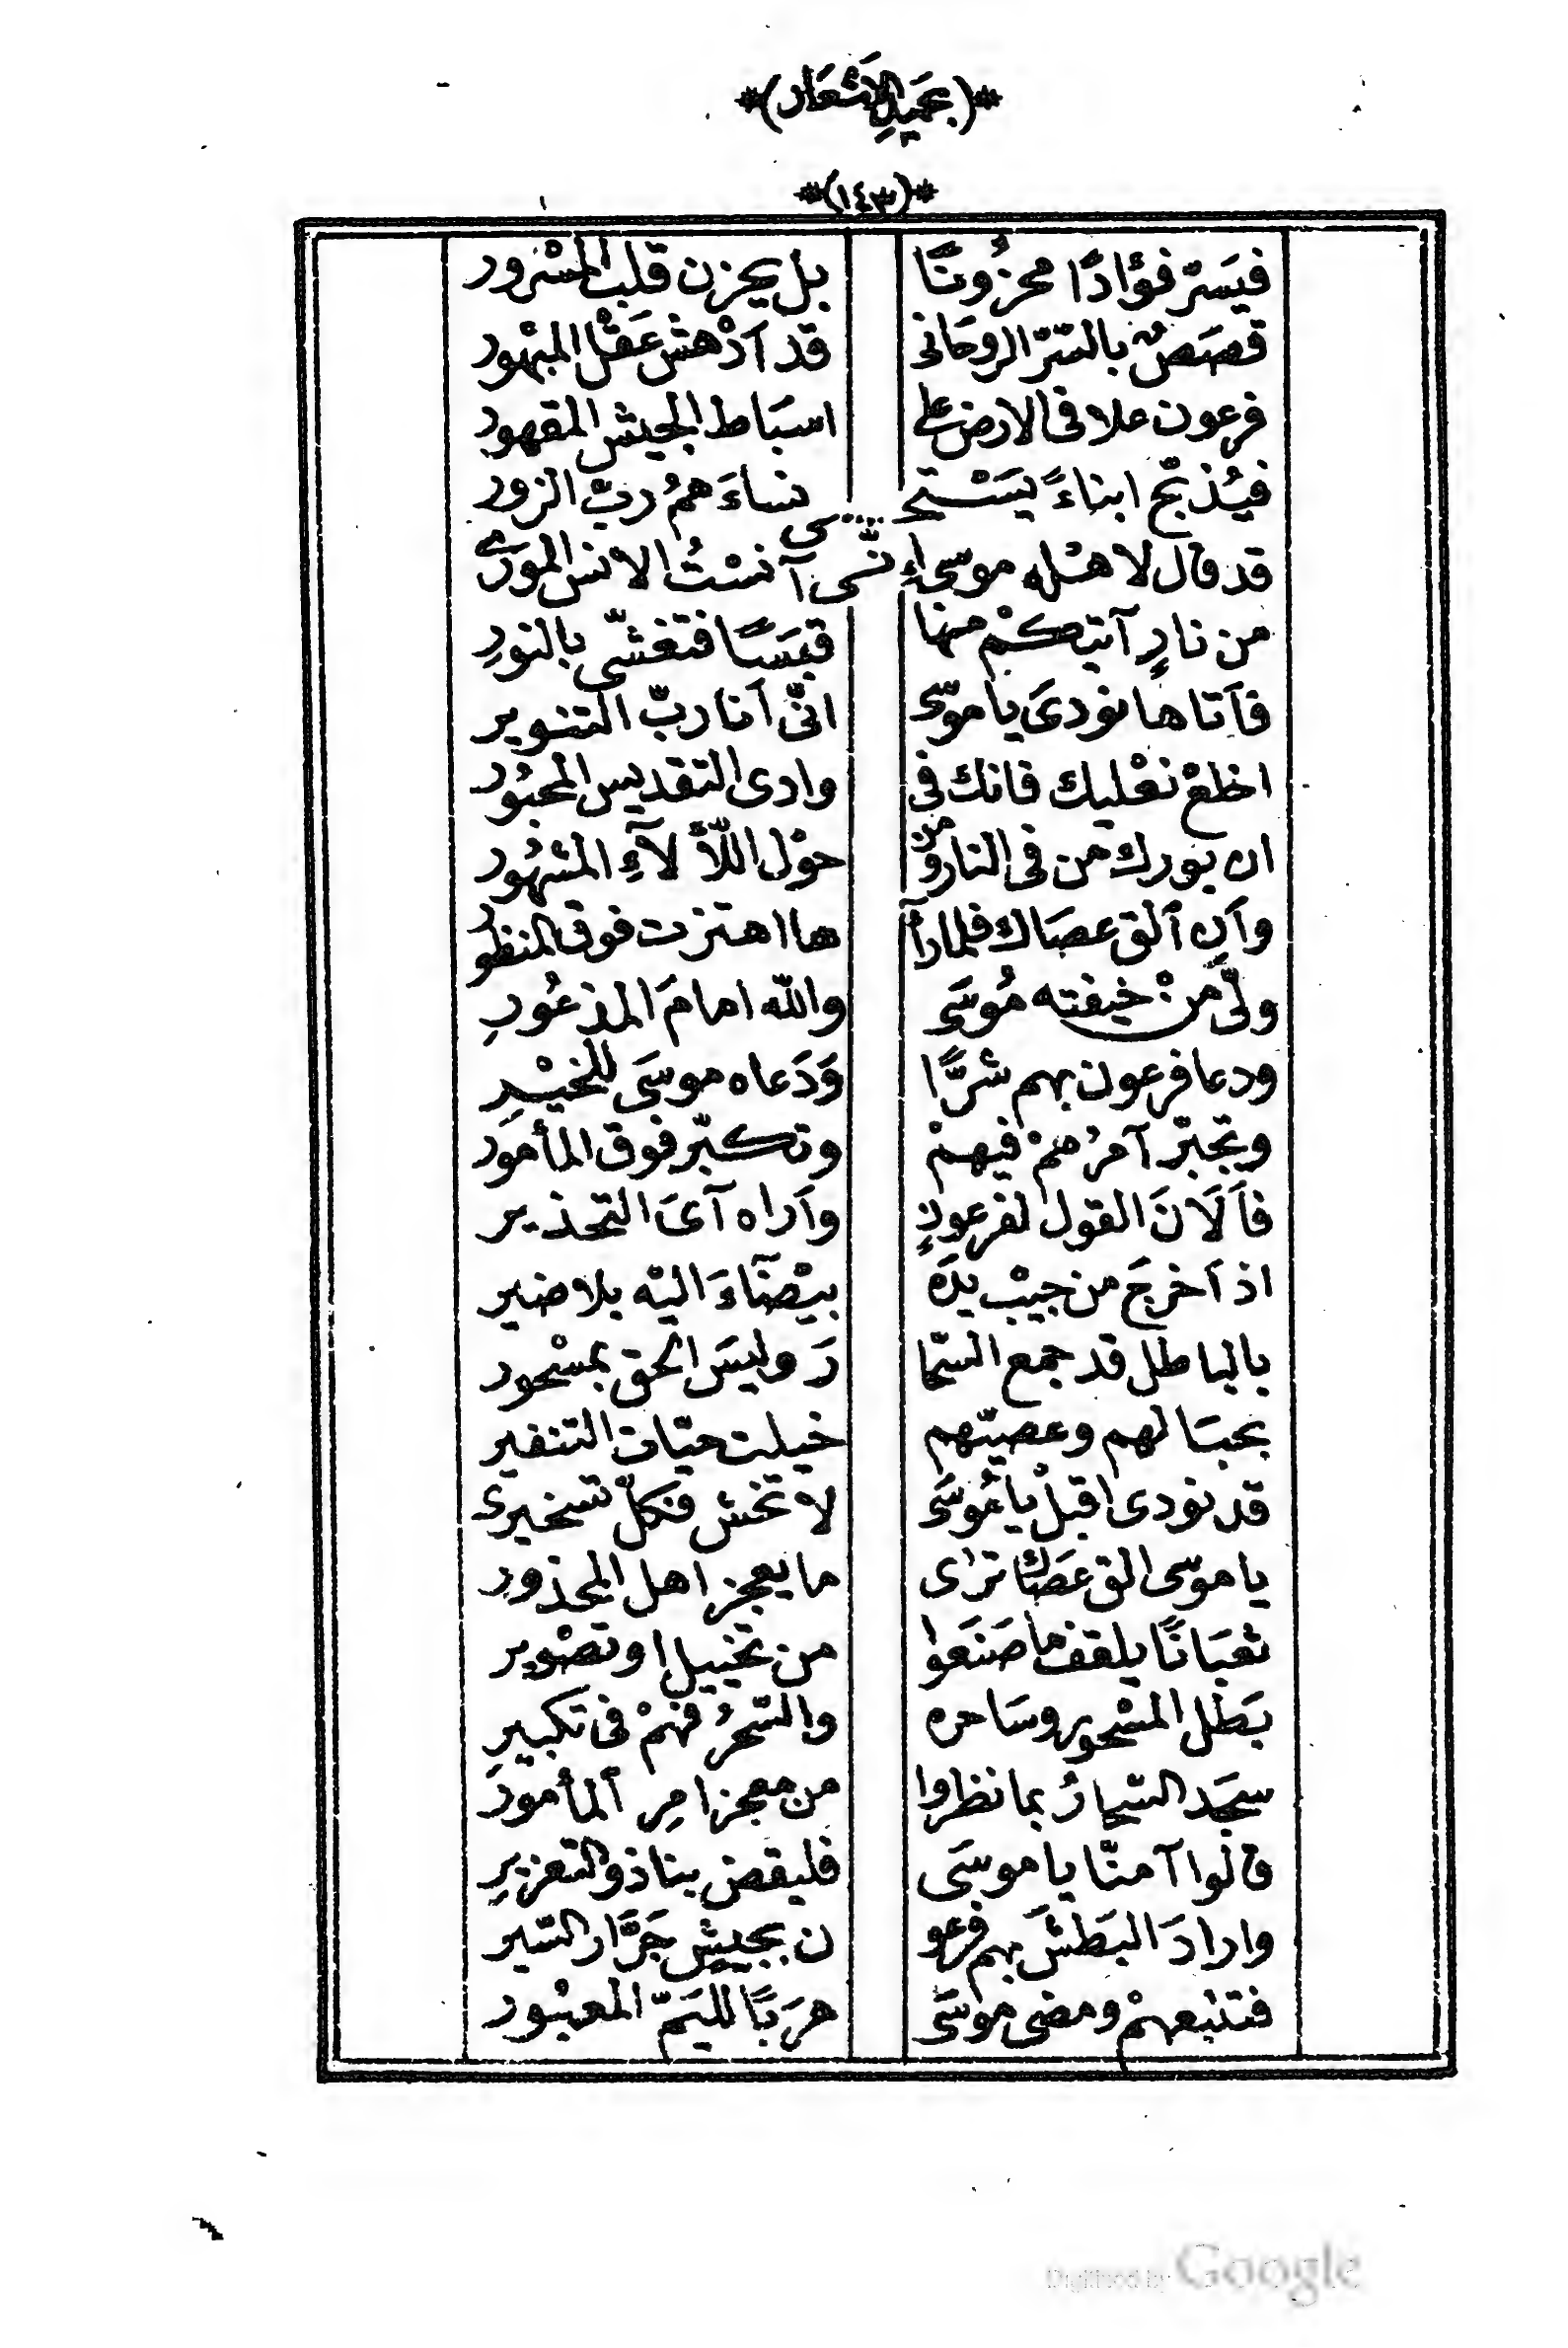 *(بجَميلِ الاَشعَار)*
*(١٤٣)*
فيَسرّ فؤادًا محزُونًا بل يحزن قلب المسْرور
قصَصٌ بالسّرّ الروحَانى قد اَدْهش عَقْل المبْهور
فرعون علا فى الارض على اسبَاط الجيش المقهور
فيُذبّح ابناءً يَسْتحـ ـيى نساءَ همُ ربّ الزور
قد قال لاهْله موسى اِنّى آنسْتُ الانس المورَى
من نارٍ آتيكمْ منها قبَسًا فتغشّى بالنورِ
فاَتاها نودىَ يا موسى انّى اَنا ربّ التنوير
اخلعْ نعْليك فانك فى وادى التقديس المحبُور
ان بورك من فى النار ومن حوْل اللّألآءِ المشهُور
واَن اَلق عصَاك فلما رآ ها اهتزت فوق المنظور
ولّى منْ خيفته مُوسَى والله امامَ المذعُورِ
ودعا فرعون بهم شرًّا وَدَعاه موسَى للخيْرِ
وتجبّر آمرُهمْ فيهمْ وتكبّر فوق المأمور
فاَلَانَ القول لفرعونٍ واَراه آىَ التحذير
اذ اَخرجَ من جيْب يدَه بيْضَآءَ اليْه بلا ضير
بالباطل قد جمع السّحا رَ وليسَ الحق بمسْحور
بحبَالهم وعصيّهم خيلت حيّات التنفير
قد نودى اقبلْ يا مُوسَى لا تخش فكلّ تسخيرى
يا موسى الق عصَاك ترٰى ما يعجز اهل المحذور
ثعبَانًا يلقف ما صَنَعوا من تخييل او تصْوير
بَطل المسْحور وسَاحره والسّحرُ فهمْ فى تكبيرِ
سجَد السّحارُ بما نظروا من معجز امرِ اَلمأمور
قالوا آمنّا يا موسَى فليقض بنا ذو التعزيرِ
وارادَ البَطشَ بهم فرعو ن بجيشٍ جَرَّار السّير
فتتبعهمْ ومضى موسَى هرَبًا لليَمّ المعبْور
Digitized by Google